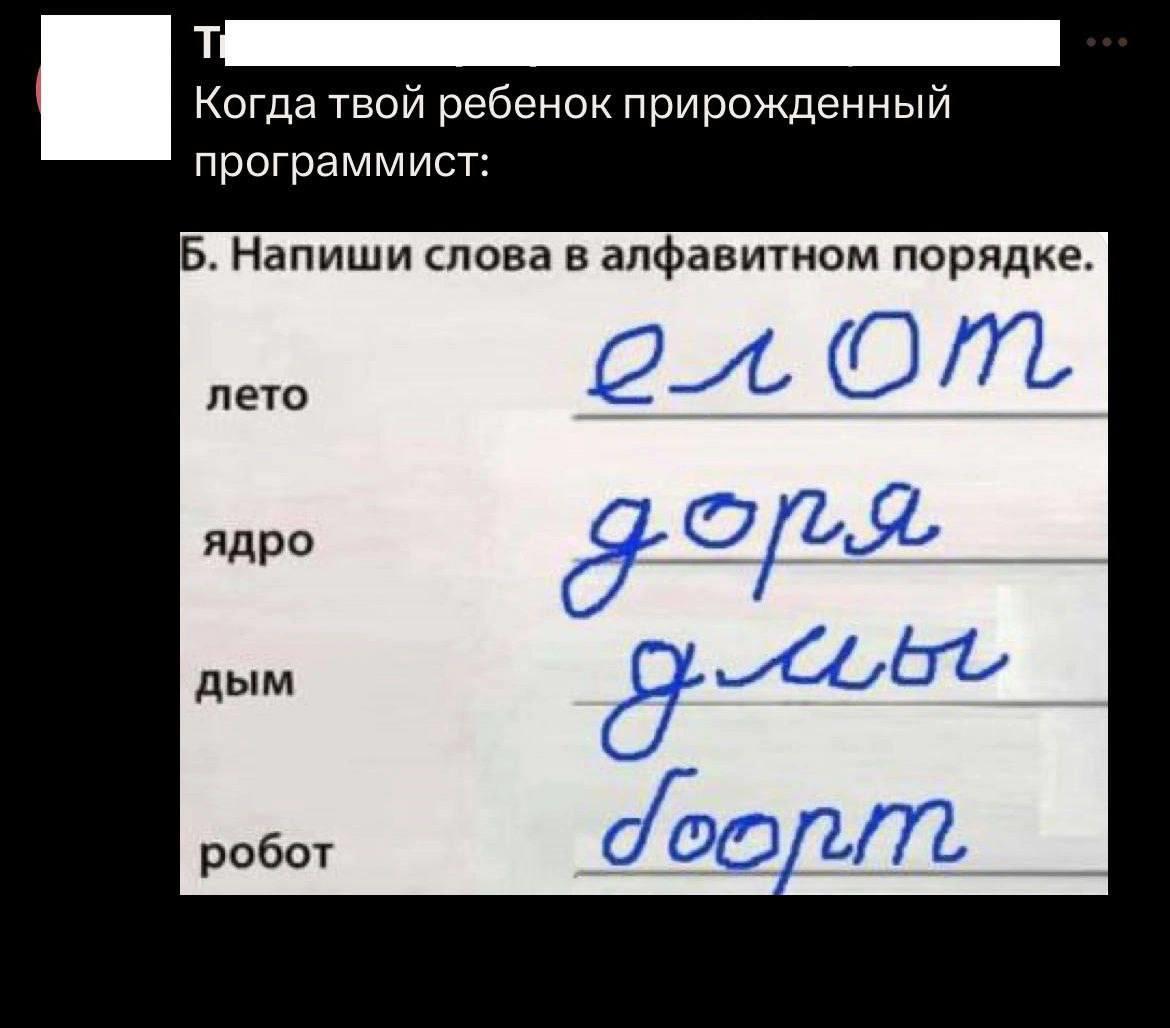 Когда твой ребенок прирожденный
программист:
Б. Напиши слова в алфавитном порядке.
лето елот
ядро доря
дым дмы
робот боорт